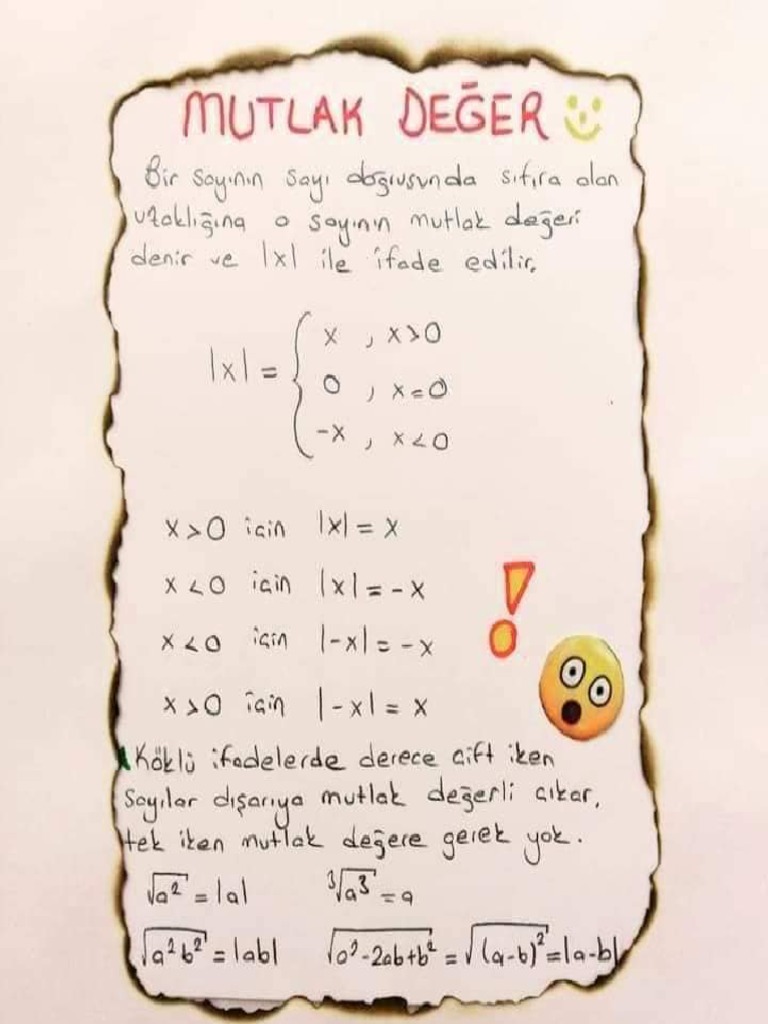 MUTLAK DEĞER
Bir sayının sayı doğrusunda sıfıra olan
uzaklığına o sayının mutlak değeri
denir ve |x| ile ifade edilir.
x , x>0
|x| = { 0 , x=0
-x , x<0
x>0 için |x| = x
x<0 için |x| = -x
x<0 için |-x| = -x
x>0 için |-x| = x
Köklü ifadelerde derece çift iken
sayılar dışarıya mutlak değerli çıkar,
tek iken mutlak değere gerek yok.
√a² = |a| ³√a³ = a
√a²b² = |ab| √a²-2ab+b² = √(a-b)² = |a-b|